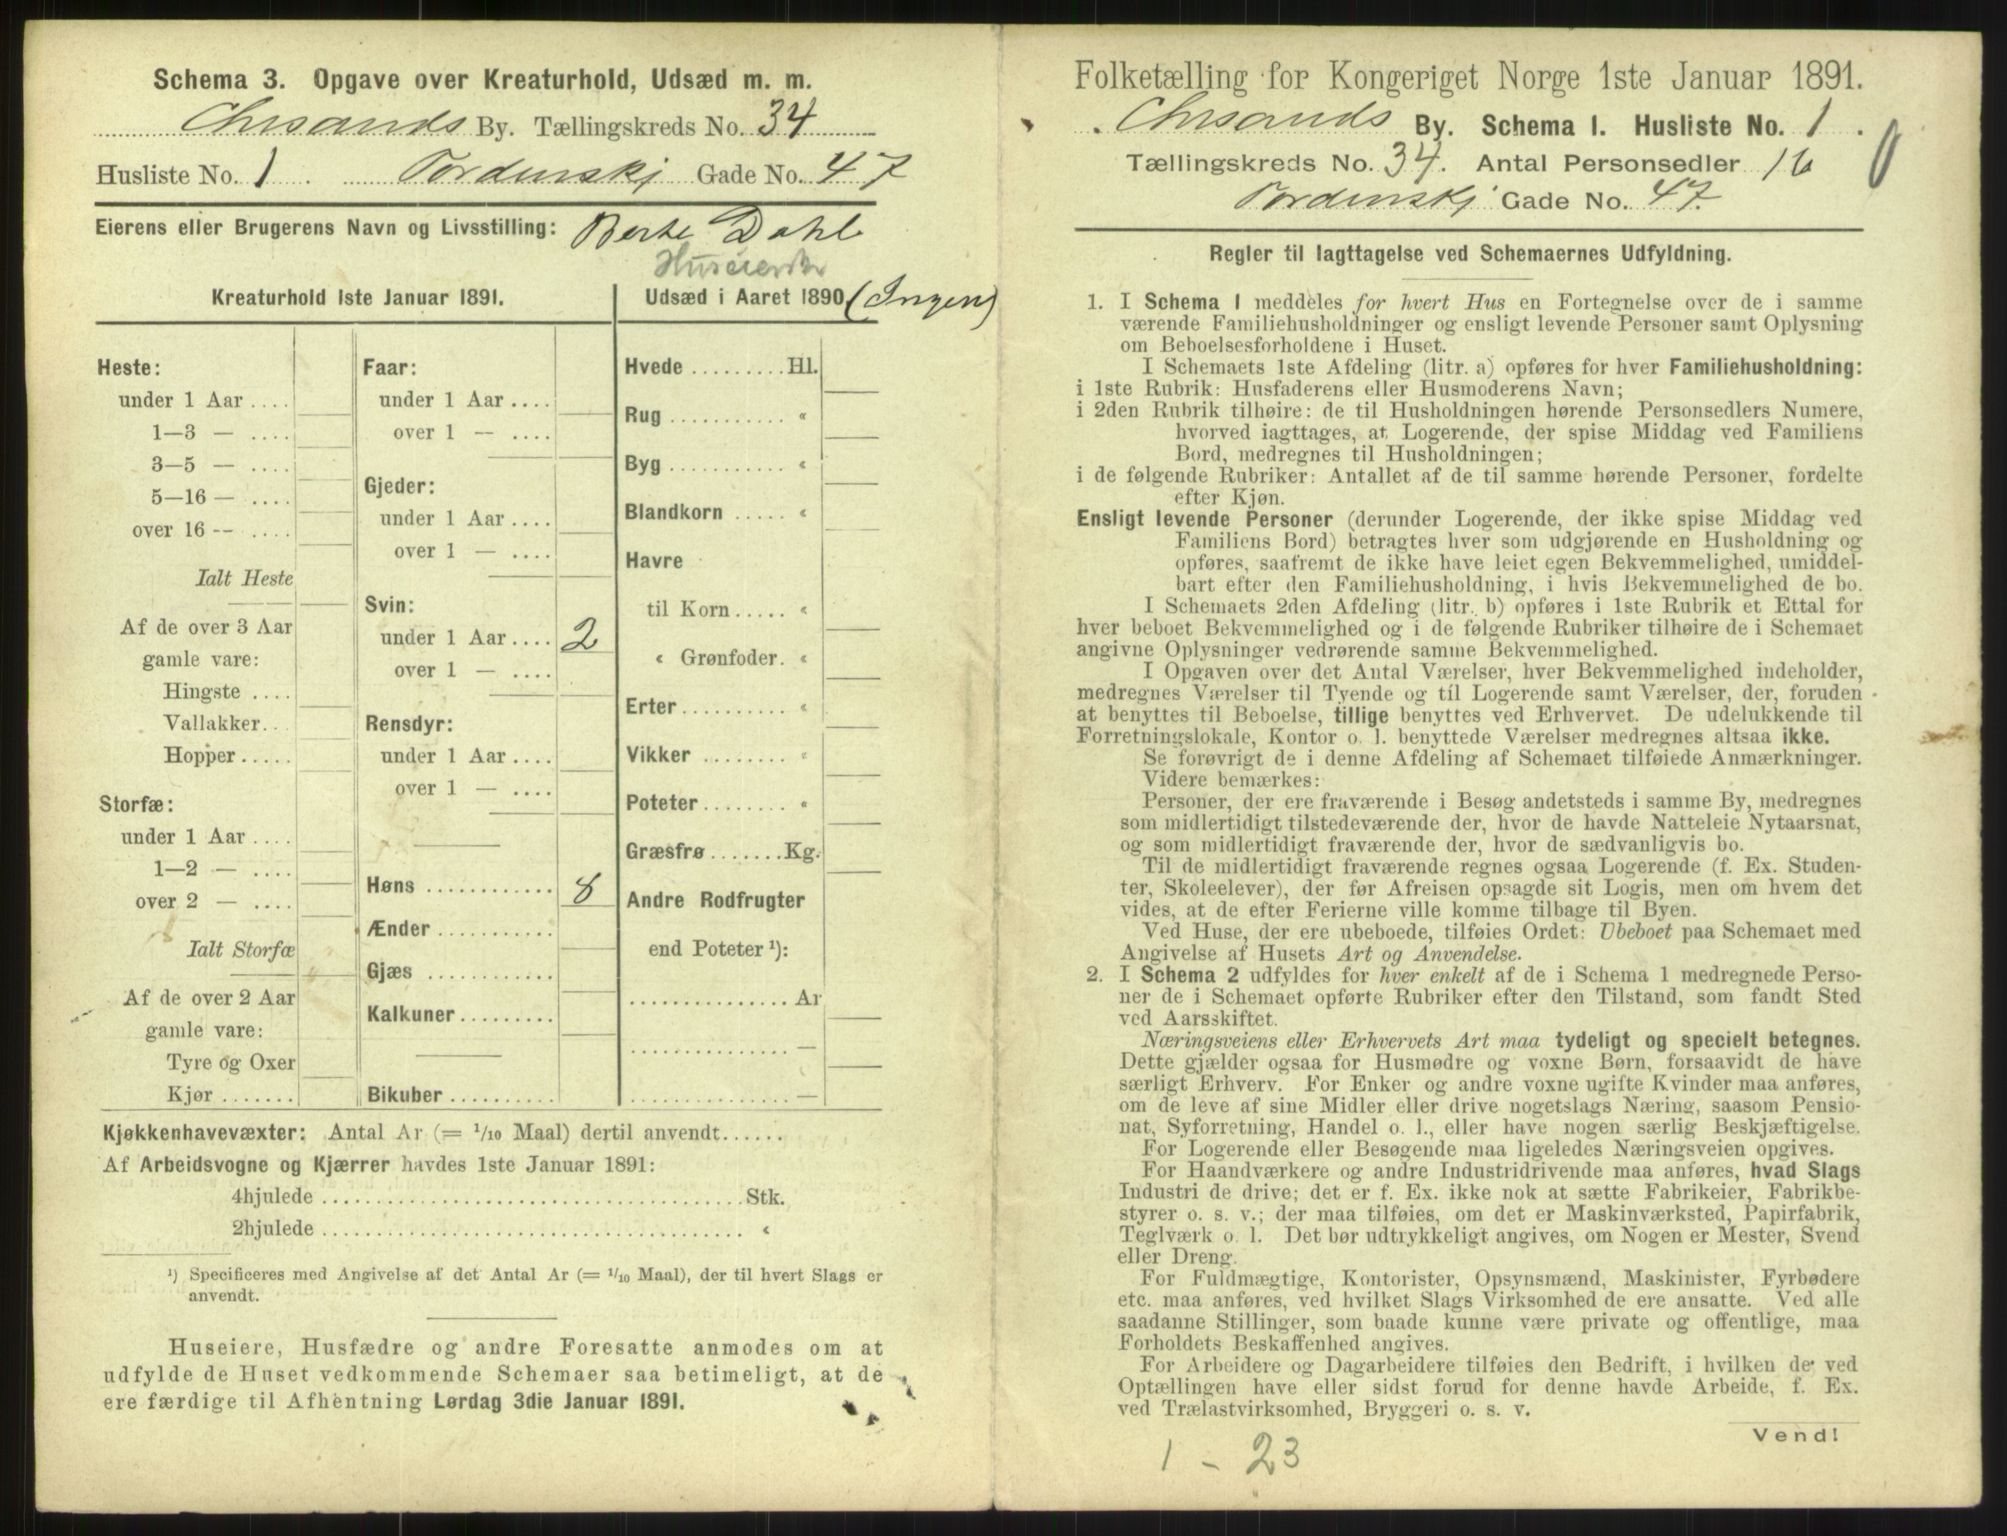 Schema 3. Opgave over Kreaturhold, Udsæd m. m.
Chrsands By. Tællingskreds No. 34
Husliste No. 1 Tordenskj Gade No. 47
Eierens eller Brugerens Navn og Livsstilling: Berte Dahl
Huseierske
Kreaturhold 1ste Januar 1891.
Udsæd i Aaret 1890 (Ingen)
Heste:
under 1 Aar ....
1—3 — ....
3—5 — ....
5—16 — ....
over 16 — ....
Ialt Heste
Af de over 3 Aar
gamle vare:
Hingste ....
Vallakker..
Hopper.....
Storfæ:
under 1 Aar ....
1—2 — ....
over 2 — ....
Ialt Storfæ
Af de over 2 Aar
gamle vare:
Tyre og Oxer
Kjør .......
Faar:
under 1 Aar ....
over 1 — ....
Gjeder:
under 1 Aar ....
over 1 — ....
Svin:
under 1 Aar .... 2
over 1 — ....
Rensdyr:
under 1 Aar ....
over 1 — ....
Høns ............ 8
Ænder ...........
Gjæs ............
Kalkuner.........
Bikuber ..........
Hvede .........Hl.
Rug ........... «
Byg ........... «
Blandkorn ..... «
Havre
til Korn ..... «
« Grønfoder. «
Erter.......... «
Vikker ........ «
Poteter........ «
Græsfrø.......Kg.
Andre Rodfrugter
end Poteter ¹):
............... Ar
............... —
............... —
Kjøkkenhavevæxter: Antal Ar (= 1/10 Maal) dertil anvendt......
Af Arbeidsvogne og Kjærrer havdes 1ste Januar 1891:
4hjulede ........................................ Stk.
2hjulede ........................................ «
¹) Specificeres med Angivelse af det Antal Ar (= 1/10 Maal), der til hvert Slags er
anvendt.
Huseiere, Husfædre og andre Foresatte anmodes om at
udfylde de Huset vedkommende Schemaer saa betimeligt, at de
ere færdige til Afhentning Lørdag 3die Januar 1891.
Folketælling for Kongeriget Norge 1ste Januar 1891.
Chrsands By. Schema 1. Husliste No. 1.
Tællingskreds No. 34. Antal Personsedler 16
Tordenskj Gade No. 47.
Regler til Iagttagelse ved Schemaernes Udfyldning.
1. I Schema 1 meddeles for hvert Hus en Fortegnelse over de i samme
værende Familiehusholdninger og ensligt levende Personer samt Oplysning
om Beboelsesforholdene i Huset.
I Schemaets 1ste Afdeling (litr. a) opføres for hver Familiehusholdning:
i 1ste Rubrik: Husfaderens eller Husmoderens Navn;
i 2den Rubrik tilhøire: de til Husholdningen hørende Personsedlers Numere,
hvorved iagttages, at Logerende, der spise Middag ved Familiens
Bord, medregnes til Husholdningen;
i de følgende Rubriker: Antallet af de til samme hørende Personer, fordelte
efter Kjøn.
Ensligt levende Personer (derunder Logerende, der ikke spise Middag ved
Familiens Bord) betragtes hver som udgjørende en Husholdning og
opføres, saafremt de ikke have leiet egen Bekvemmelighed, umiddel-
bart efter den Familiehusholdning, i hvis Bekvemmelighed de bo.
I Schemaets 2den Afdeling (litr. b) opføres i 1ste Rubrik et Ettal for
hver beboet Bekvemmelighed og i de følgende Rubriker tilhøire de i Schemaet
angivne Oplysninger vedrørende samme Bekvemmelighed.
I Opgaven over det Antal Værelser, hver Bekvemmelighed indeholder,
medregnes Værelser til Tyende og til Logerende samt Værelser, der, foruden
at benyttes til Beboelse, tillige benyttes ved Erhvervet. De udelukkende til
Forretningslokale, Kontor o. l. benyttede Værelser medregnes altsaa ikke.
Se forøvrigt de i denne Afdeling af Schemaet tilføiede Anmærkninger.
Videre bemærkes:
Personer, der ere fraværende i Besøg andetsteds i samme By, medregnes
som midlertidigt tilstedeværende der, hvor de havde Natteleie Nytaarsnat,
og som midlertidigt fraværende der, hvor de sædvanligvis bo.
Til de midlertidigt fraværende regnes ogsaa Logerende (f. Ex. Studen-
ter, Skoleelever), der før Afreisen opsagde sit Logis, men om hvem det
vides, at de efter Ferierne ville komme tilbage til Byen.
Ved Huse, der ere ubeboede, tilføies Ordet: Ubeboet paa Schemaet med
Angivelse af Husets Art og Anvendelse.
2. I Schema 2 udfyldes for hver enkelt af de i Schema 1 medregnede Perso-
ner de i Schemaet opførte Rubriker efter den Tilstand, som fandt Sted
ved Aarsskiftet.
Næringsveiens eller Erhvervets Art maa tydeligt og specielt betegnes.
Dette gjælder ogsaa for Husmødre og voxne Børn, forsaavidt de have
særligt Erhverv. For Enker og andre voxne ugifte Kvinder maa anføres,
om de leve af sine Midler eller drive nogetslags Næring, saasom Pensio-
nat, Syforretning, Handel o. l., eller have nogen særlig Beskjæftigelse.
For Logerende eller Besøgende maa ligeledes Næringsveien opgives.
For Haandværkere og andre Industridrivende maa anføres, hvad Slags
Industri de drive; det er f. Ex. ikke nok at sætte Fabrikeier, Fabrikbe-
styrer o. s. v.; der maa tilføies, om det er Maskinværksted, Papirfabrik,
Teglværk o. l. Det bør udtrykkeligt angives, om Nogen er Mester, Svend
eller Dreng.
For Fuldmægtige, Kontorister, Opsynsmænd, Maskinister, Fyrbødere
etc. maa anføres, ved hvilket Slags Virksomhed de ere ansatte. Ved alle
saadanne Stillinger, som baade kunne være private og offentlige, maa
Forholdets Beskaffenhed angives.
For Arbeidere og Dagarbeidere tilføies den Bedrift, i hvilken de ved
Optællingen have eller sidst forud for denne havde Arbeide, f. Ex.
ved Trælastvirksomhed, Bryggeri o. s. v.
Vend!
1 - 23